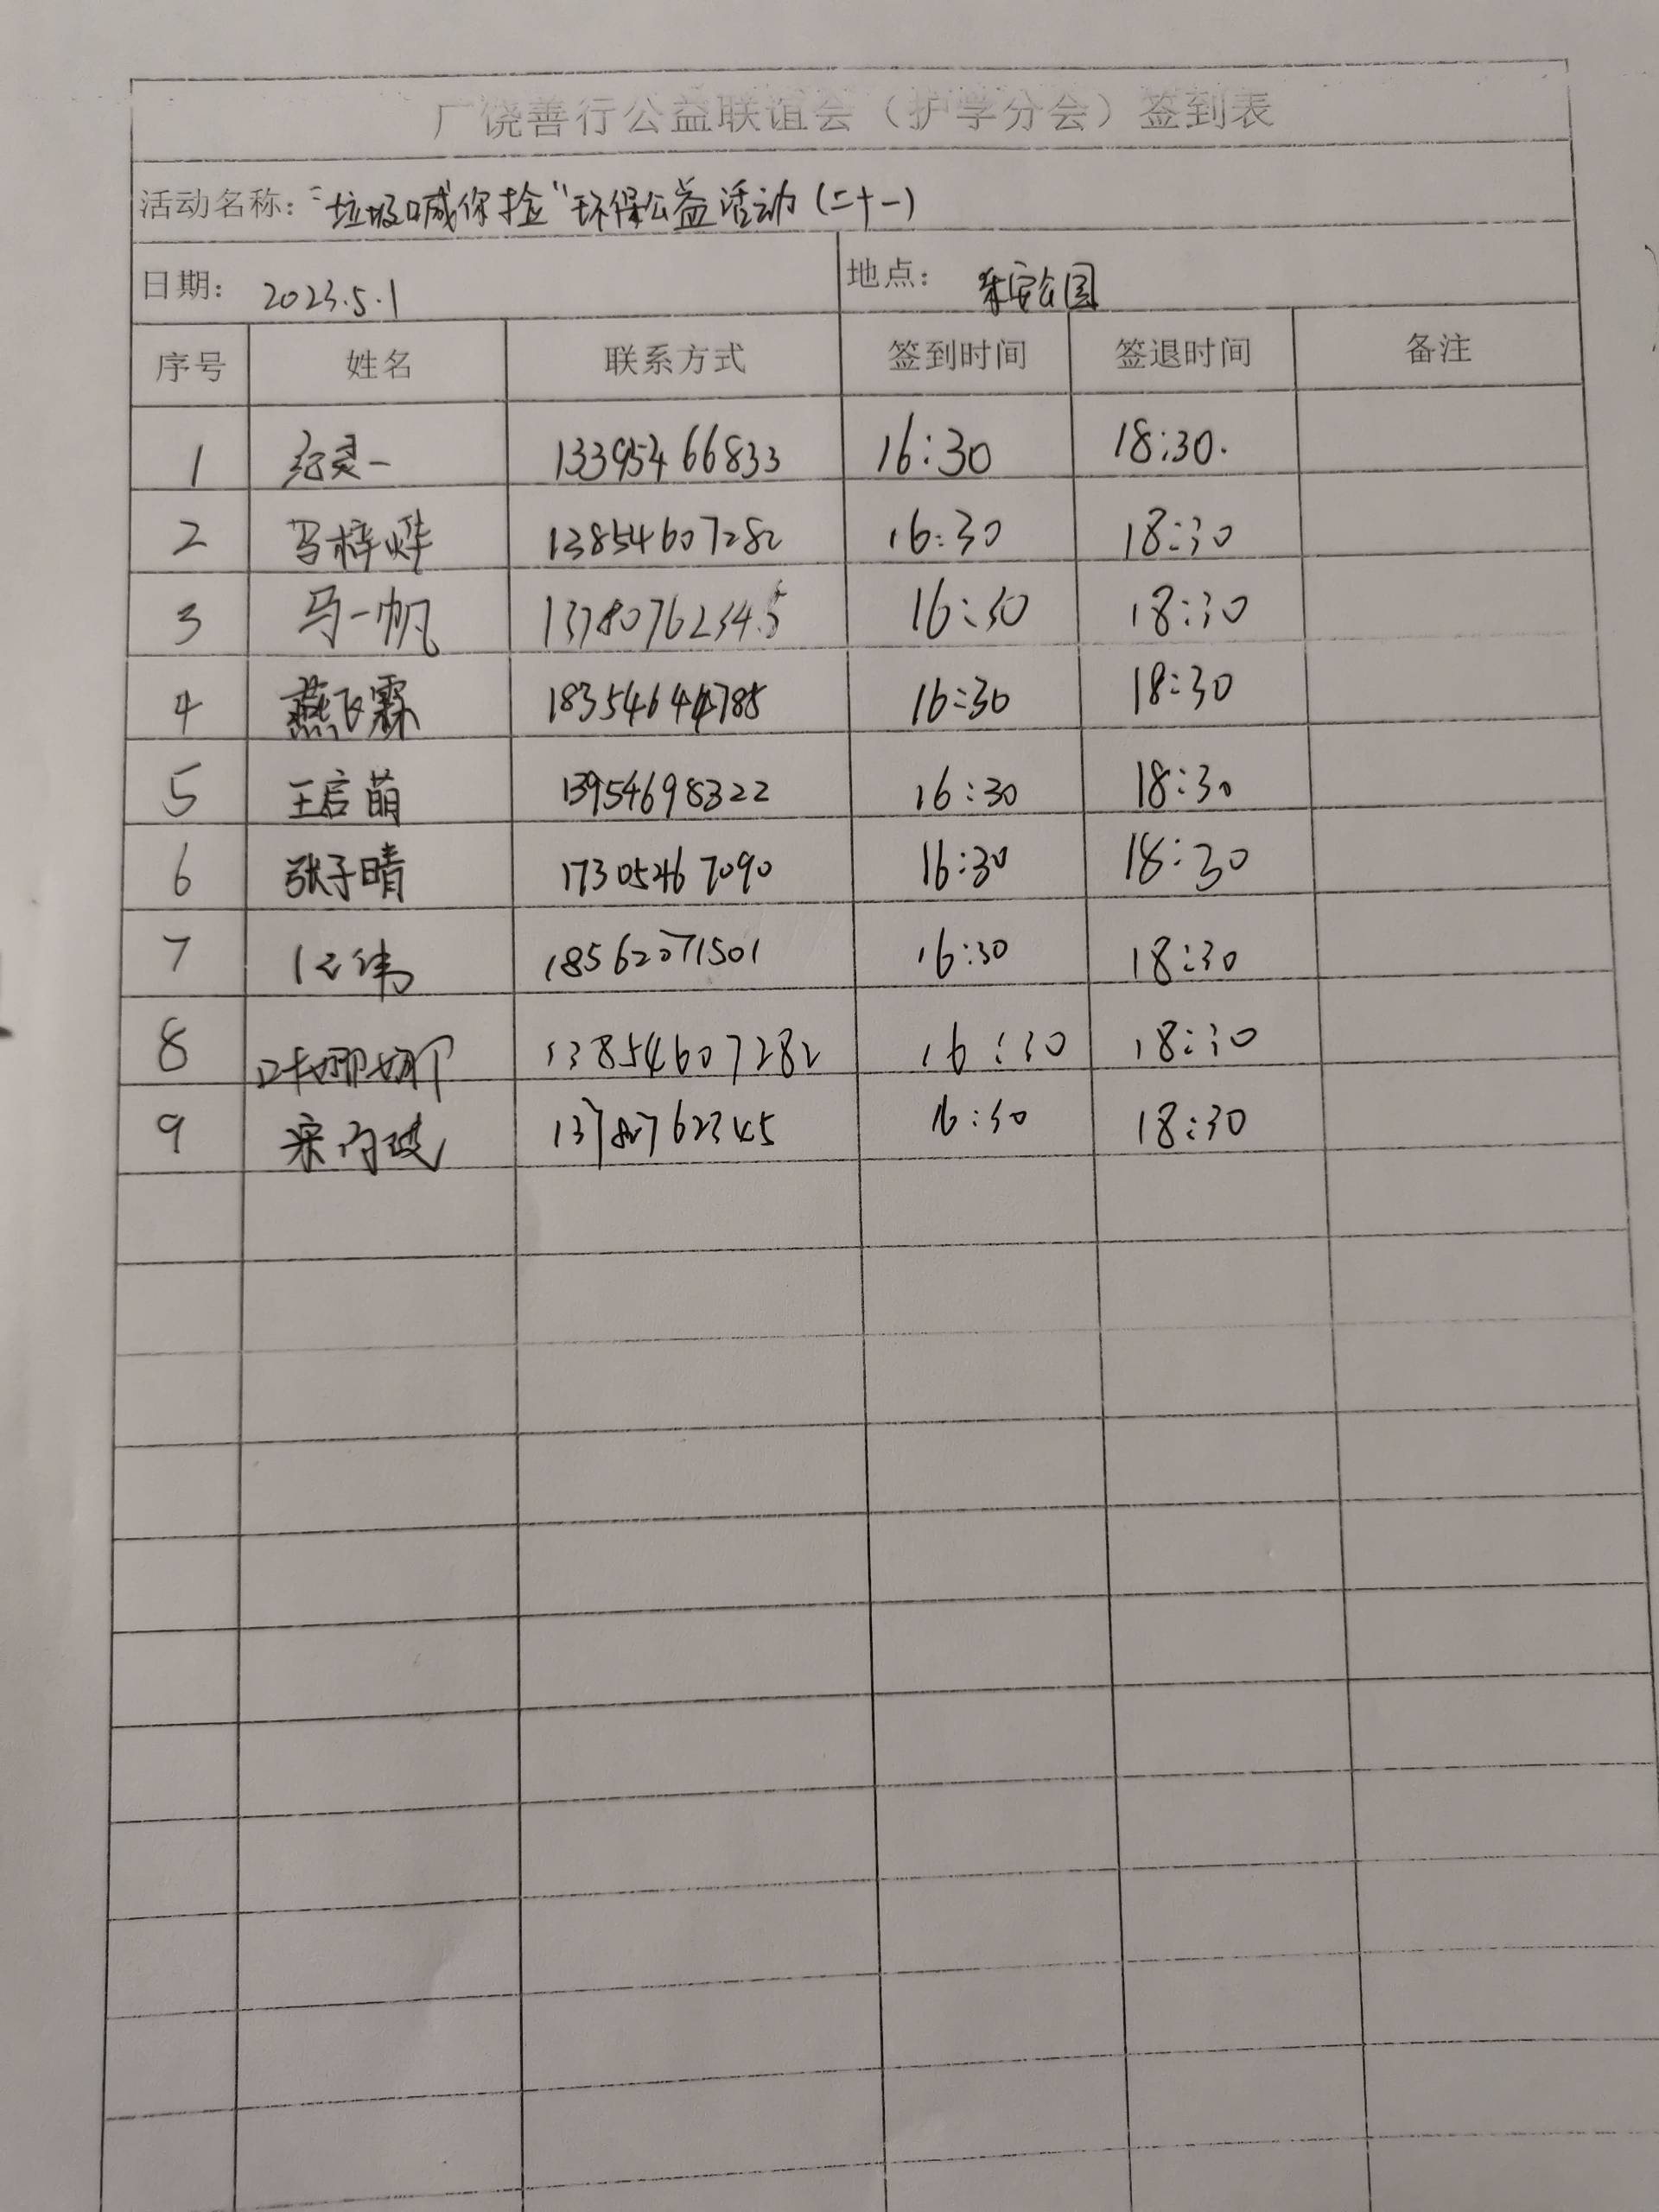 广饶善行公益联谊会（护学分会）签到表
活动名称：“垃圾喊你捡”环保公益活动（二十一）
日期： 2023.5.1 地点： 乐安公园
序号 姓名 联系方式 签到时间 签退时间 备注
1 纪灵一 13395466833 16:30 18:30.
2 马梓烨 13854607282 16:30 18:30
3 马一帆 13780762345 16:30 18:30
4 燕飞霖 18354644785 16:30 18:30
5 王启萌 13954698322 16:30 18:30
6 张子晴 17305467090 16:30 18:30
7 18562071501 16:30 18:30
8 13854607282 16:30 18:30
9 16:30 18:30